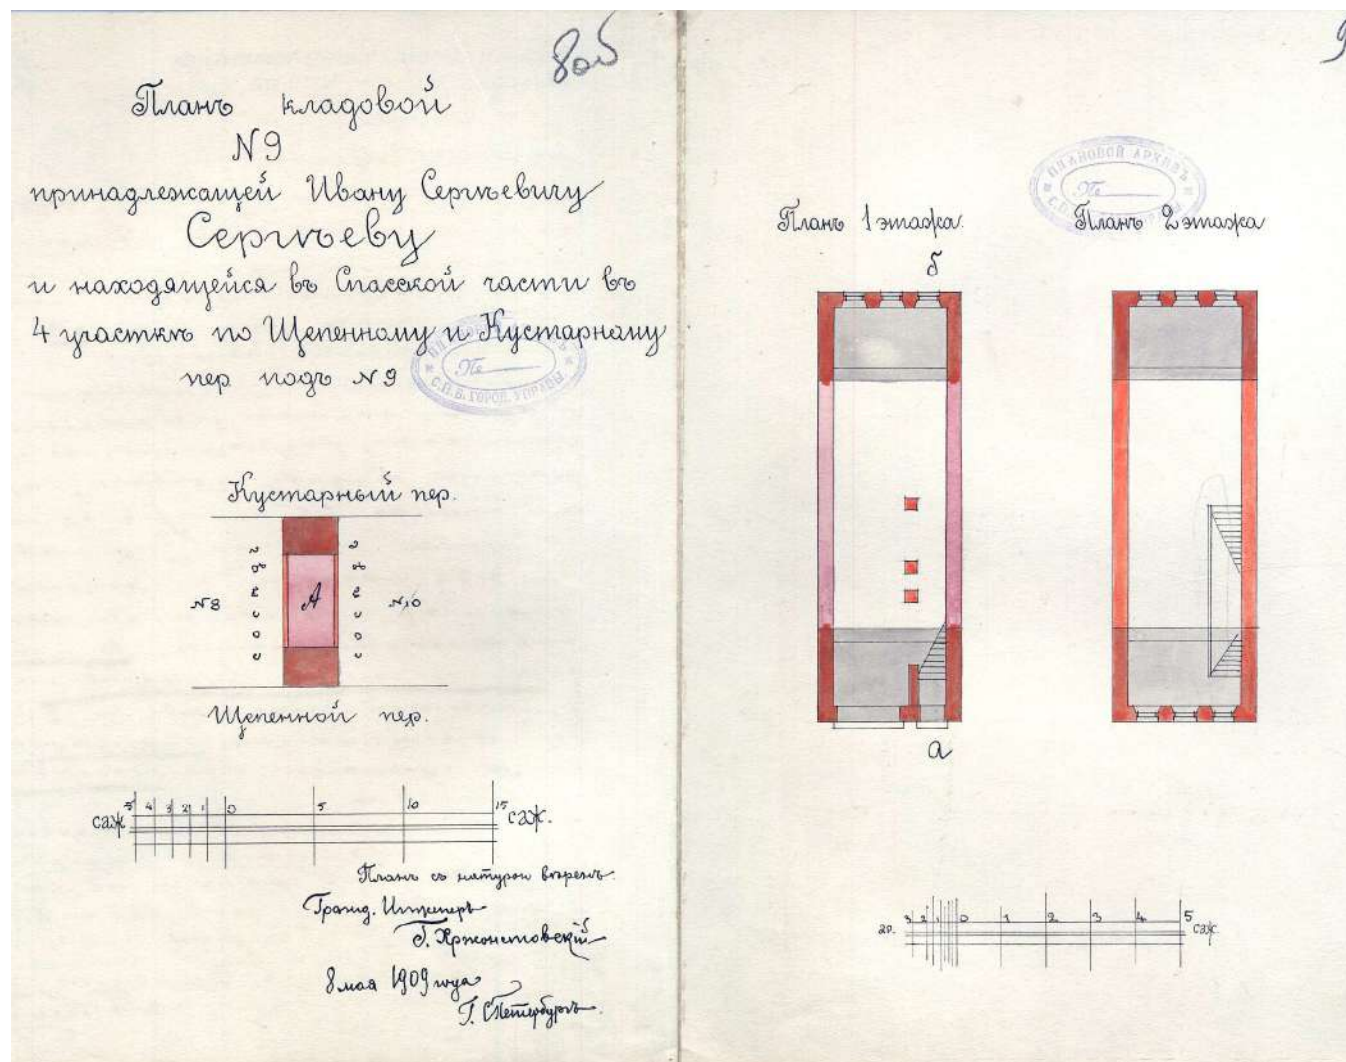 8об
Планъ кладовой
N 9
принадлежащей Ивану Сергѣевичу
Сергѣеву
и находящейся въ Спасской части въ
4 участкѣ по Щепенному и Кустарному
пер подъ N 9
ПЛАНОВОЙ АРХИВЪ
№
С.П.Б. ГОРОД. УПРАВЫ
Кустарный пер.
N 8
А
N 10
Щепенной пер.
саж 5 4 3 2 1 0 5 10 15 саж.
Планъ съ натурою вѣренъ.
Гражд. Инженеръ
8 мая 1909 года
Г. СПетербургъ.
9
ПЛАНОВОЙ АРХИВЪ
№
С.П.Б. ГОРОД. УПРАВЫ
Планъ 1 этажа.
Планъ 2 этажа
б
а
ар. 3 2 1 0 1 2 3 4 5 саж.